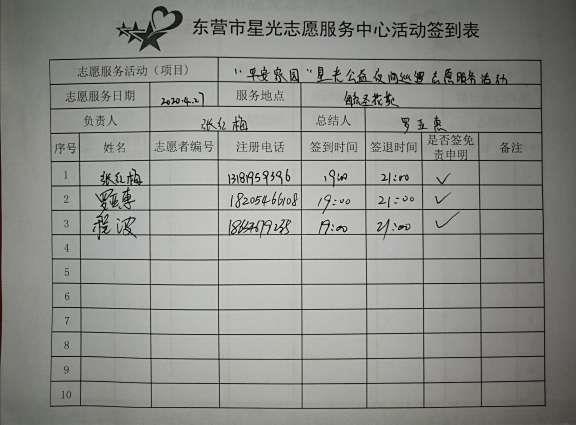 东营市星光志愿服务中心活动签到表
志愿服务活动（项目） "平安家园"星光公益夜间巡逻志愿服务活动
志愿服务日期 2020.4.27 服务地点
负责人 张红梅 总结人 罗亚惠
序号 姓名 志愿者编号 注册电话 签到时间 签退时间 是否签免责申明 备注
1 张红梅 19:00 21:00 ✓
2 18205466108 19:00 21:00 ✓
3 程波 19:00 21:00 ✓
4
5
6
7
8
9
10